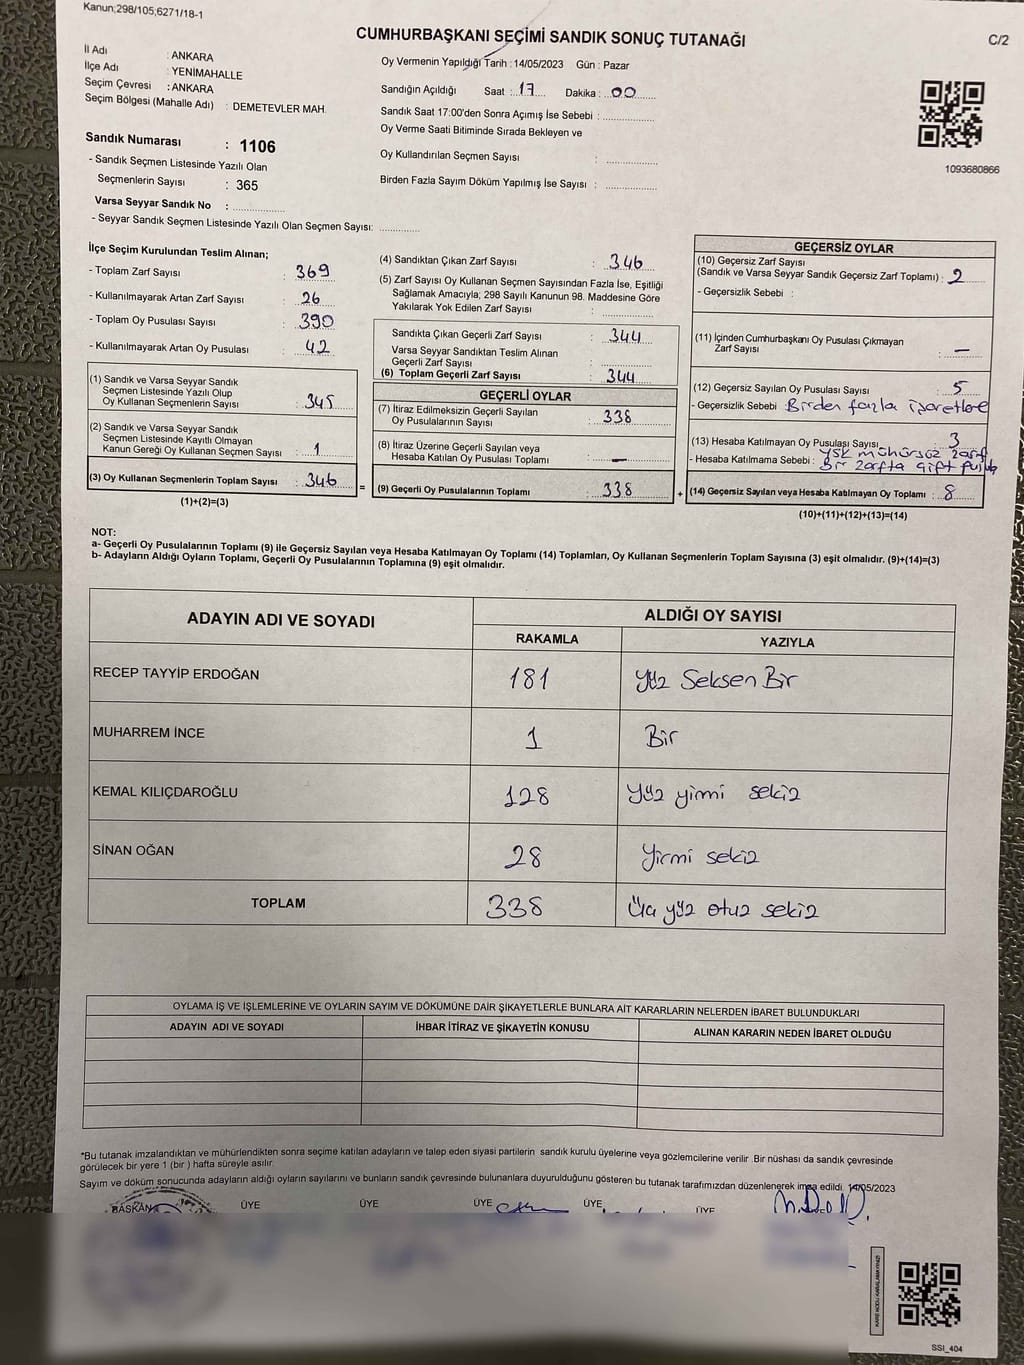 Kanun;298/105;6271/18-1
CUMHURBAŞKANI SEÇİMİ SANDIK SONUÇ TUTANAĞI
C/2
İl Adı : ANKARA
İlçe Adı : YENİMAHALLE
Seçim Çevresi : ANKARA
Seçim Bölgesi (Mahalle Adı) : DEMETEVLER MAH.
Sandık Numarası : 1106
- Sandık Seçmen Listesinde Yazılı Olan
Seçmenlerin Sayısı : 365
Varsa Seyyar Sandık No : ...............
- Seyyar Sandık Seçmen Listesinde Yazılı Olan Seçmen Sayısı: ............
Oy Vermenin Yapıldığı Tarih : 14/05/2023 Gün : Pazar
Sandığın Açıldığı Saat : 17 Dakika : 00
Sandık Saat 17:00'den Sonra Açımış İse Sebebi : ...............
Oy Verme Saati Bitiminde Sırada Bekleyen ve
Oy Kullandırılan Seçmen Sayısı : ...............
Birden Fazla Sayım Döküm Yapılmış İse Sayısı : ...............
1093680866
İlçe Seçim Kurulundan Teslim Alınan;
- Toplam Zarf Sayısı : 369
- Kullanılmayarak Artan Zarf Sayısı : 26
- Toplam Oy Pusulası Sayısı : 390
- Kullanılmayarak Artan Oy Pusulası : 42
(1) Sandık ve Varsa Seyyar Sandık
Seçmen Listesinde Yazılı Olup
Oy Kullanan Seçmenlerin Sayısı : 345
(2) Sandık ve Varsa Seyyar Sandık
Seçmen Listesinde Kayıtlı Olmayan
Kanun Gereği Oy Kullanan Seçmen Sayısı : 1
(3) Oy Kullanan Seçmenlerin Toplam Sayısı : 346
(1)+(2)=(3)
(4) Sandıktan Çıkan Zarf Sayısı : 346
(5) Zarf Sayısı Oy Kullanan Seçmen Sayısından Fazla İse, Eşitliği
Sağlamak Amacıyla; 298 Sayılı Kanunun 98. Maddesine Göre
Yakılarak Yok Edilen Zarf Sayısı : ...............
Sandıkta Çıkan Geçerli Zarf Sayısı : 344
Varsa Seyyar Sandıktan Teslim Alınan
Geçerli Zarf Sayısı : ...............
(6) Toplam Geçerli Zarf Sayısı : 344
GEÇERLİ OYLAR
(7) İtiraz Edilmeksizin Geçerli Sayılan
Oy Pusulalarının Sayısı : 338
(8) İtiraz Üzerine Geçerli Sayılan veya
Hesaba Katılan Oy Pusulası Toplamı : —
= (9) Geçerli Oy Pusulalarının Toplamı : 338 +
GEÇERSİZ OYLAR
(10) Geçersiz Zarf Sayısı
(Sandık ve Varsa Seyyar Sandık Geçersiz Zarf Toplamı) : 2
- Geçersizlik Sebebi :
(11) İçinden Cumhurbaşkanı Oy Pusulası Çıkmayan
Zarf Sayısı : —
(12) Geçersiz Sayılan Oy Pusulası Sayısı : 5
- Geçersizlik Sebebi Birden fazla işaretleme
(13) Hesaba Katılmayan Oy Pusulası Sayısı 3
- Hesaba Katılmama Sebebi : YSK mühürsüz zarf
Bir zarfta çift pusula
(14) Geçersiz Sayılan veya Hesaba Katılmayan Oy Toplamı : 8
(10)+(11)+(12)+(13)=(14)
NOT:
a- Geçerli Oy Pusulalarının Toplamı (9) ile Geçersiz Sayılan veya Hesaba Katılmayan Oy Toplamı (14) Toplamları, Oy Kullanan Seçmenlerin Toplam Sayısına (3) eşit olmalıdır. (9)+(14)=(3)
b- Adayların Aldığı Oyların Toplamı, Geçerli Oy Pusulalarının Toplamına (9) eşit olmalıdır.
ADAYIN ADI VE SOYADI
ALDIĞI OY SAYISI
RAKAMLA YAZIYLA
RECEP TAYYİP ERDOĞAN 181 Yüz Seksen Bir
MUHARREM İNCE 1 Bir
KEMAL KILIÇDAROĞLU 128 Yüz yirmi sekiz
SİNAN OĞAN 28 Yirmi sekiz
TOPLAM 338 Üç yüz otuz sekiz
OYLAMA İŞ VE İŞLEMLERİNE VE OYLARIN SAYIM VE DÖKÜMÜNE DAİR ŞİKAYETLERLE BUNLARA AİT KARARLARIN NELERDEN İBARET BULUNDUKLARI
ADAYIN ADI VE SOYADI İHBAR İTİRAZ VE ŞİKAYETİN KONUSU ALINAN KARARIN NEDEN İBARET OLDUĞU
*Bu tutanak imzalandıktan ve mühürlendikten sonra seçime katılan adayların ve talep eden siyasi partilerin sandık kurulu üyelerine veya gözlemcilerine verilir .Bir nüshası da sandık çevresinde
görülecek bir yere 1 (bir ) hafta süreyle asılır.
Sayım ve döküm sonucunda adayların aldığı oyların sayılarını ve bunların sandık çevresinde bulunanlara duyurulduğunu gösteren bu tutanak tarafımızdan düzenlenerek imza edildi. 14/05/2023
BAŞKAN ÜYE ÜYE ÜYE ÜYE ÜYE
KARE KODU KARALAMAYINIZ!
SSI_404